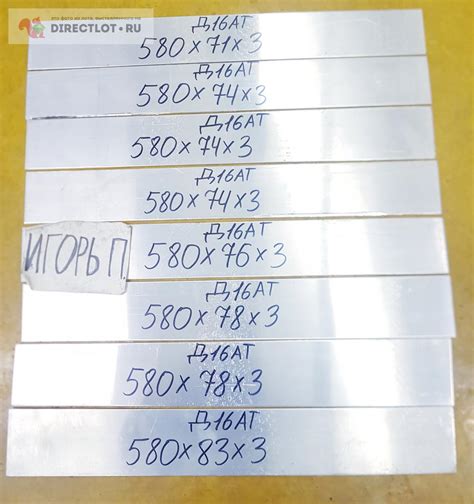 это фото из лота, выставленного на
DIRECTLOT.RU
Д16АТ
580×71×3
Д16АТ
580×74×3
Д16АТ
580×74×3
Д16АТ
580×74×3
ИГОРЬ П.
Д16АТ
580×76×3
Д16АТ
580×78×3
Д16АТ
580×78×3
Д16АТ
580×83×3